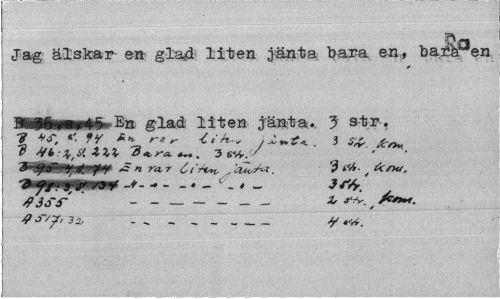 Jag älskar en glad liten jänta bara en, bara en
B 36, s. 45 En glad liten jänta. 3 str.
B 45, s. 94 En rar liten jänta. 3 str. kom.
B 46:2, s. 222 Bara en. 3 str.
B 95 s. 74 En rar liten jänta. 3 str. kom.
B 98:3, s. 134 -"- -"- -"- 3 str.
A 355 – – – – – – – 2 str. kom.
A 517:32 – – – – – – – 4 str.